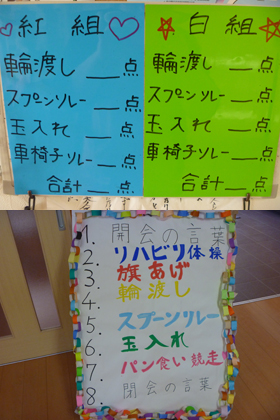 ♡紅組♡
輪渡し __点
スプーンリレー __点
玉入れ __点
車椅子リレー __点
合計 __点
☆白組☆
輪渡し __点
スプーンリレー __点
玉入れ __点
車椅子リレー __点
合計 __点
1. 開会の言葉
2. リハビリ体操
3. 旗あげ
4. 輪渡し
5. スプーンリレー
6. 玉入れ
7. パン食い競走
8. 閉会の言葉